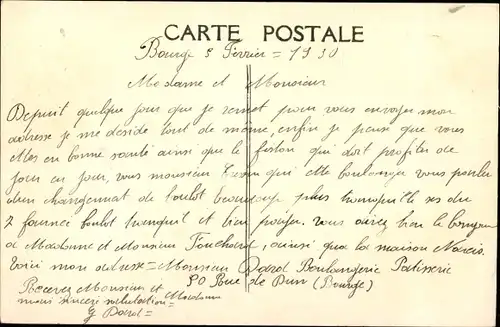 CARTE POSTALE
Bourge 5 Fevrier = 1930
Madame et Monsieur
Depuit quelque jour que je remet pour vous envoyer mon
adresse je me décide tout de même, enfin je pense que vous
etes en bonne santé ainsi que le fiston qui doit profiter de
jour en jour, vous monsieur qui ette boulanger vous parler
d'un changement de boulot beaucoup plus tranquille ses du
2 fournée boulot tranquil et bien payer. Vous direz bien le bonjour
a Madame et Monsieur Fouchard, ainsi que la maison
Voici mon adresse = Monsieur Darol Boulangerie Patisserie
50 Rue de Dun (Bourge)
Recevez Monsieur et Madame
mais sincere salutation =
G Darol =